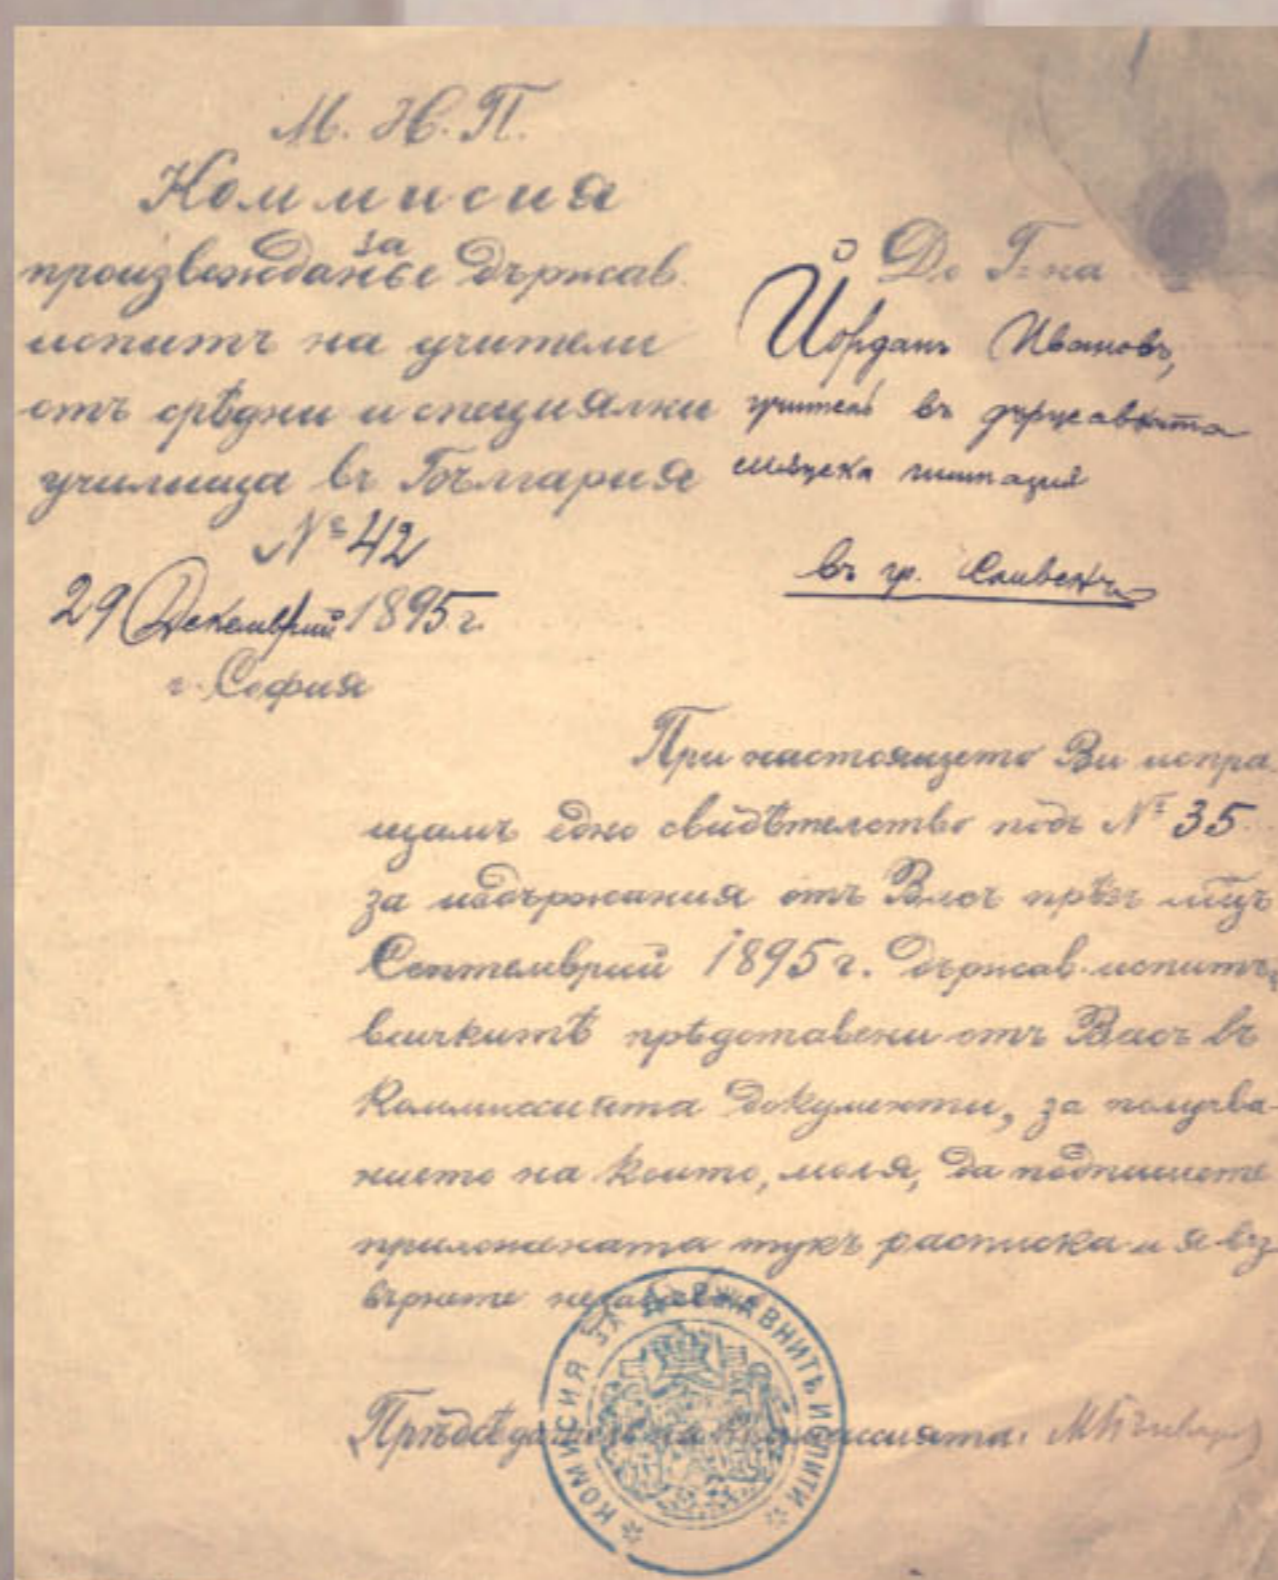 М. Н. П.
Коммисия
за
произвожданье държав.
испитъ на учители
отъ срѣдни и специялни
училища въ България
№ 42
29 Декемврий 1895 г.
г. София
До Г-на
Йорданъ Ивановъ,
учитель въ държавната
мѫжска гимназия
въ гр. Сливенъ
При настоящето Ви испра-
щамъ едно свидѣтелство подъ № 35
за издържания отъ Васъ прѣзъ
Септемврий 1895 г. държав. испитъ,
всичкитѣ прѣдставени отъ Васъ въ
Коммиссията документи, за получва-
нието на които, моля, да подпишете
приложената тукъ расписка и я въз
върнете незабавно
Прѣдседатель на Коммиссията:
КОМИСИЯ ЗА ДЪРЖАВНИТѢ ИСПИТИ